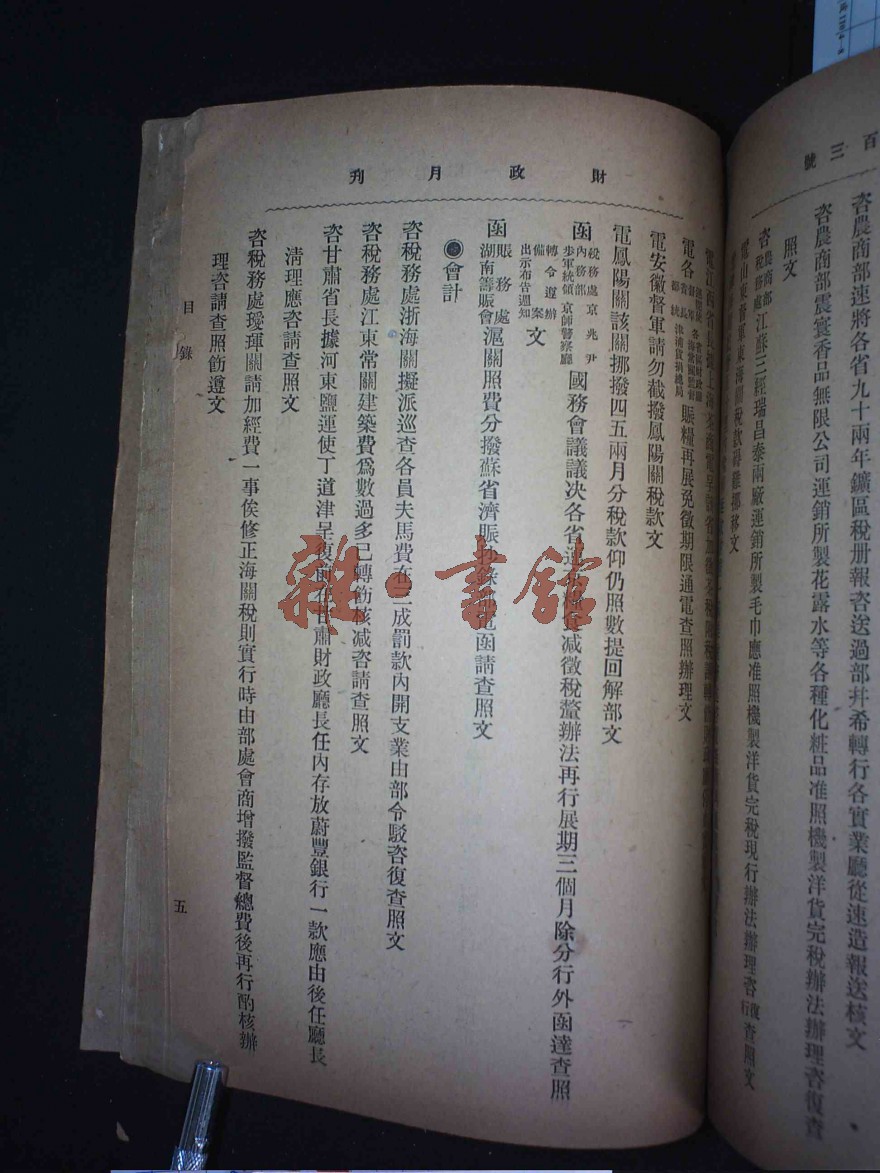 百三號
咨農商部速將各省九十兩年鑛區稅册報咨送過部幷希轉行各實業廳從速造報送核文
咨農商部震寰香品無限公司運銷所製花露水等各種化粧品准照機製洋貨完稅辦法辦理咨復查
照文
咨農商部稅務處江蘇三經瑞昌泰兩廠運銷所製毛巾應准照機製洋貨完稅現行辦法辦理咨復行查照文
電山東督軍東海關稅款礙難挪移文
財政月刋
電各
賑糧再展免徵期限通電查照辦理文
電安徽督軍請勿截撥鳳陽關稅款文
電鳳陽關該關挪撥四五兩月分稅款仰仍照數提回解部文
函稅務處京兆尹內務部步軍統領京師警察廳國務會議議決各省減徵稅釐辦法再行展期三個月除分行外函達查照
轉令遵辦備案出示布告週知文
函賑務處湖南籌賑會滬關照費分撥蘇省濟賑抄錄電函請查照文
●會計
咨稅務處浙海關擬派巡查各員夫馬費在二成罰款內開支業由部令駁咨復查照文
咨稅務處江東常關建築費爲數過多已轉飭核減咨請查照文
咨甘肅省長據河東鹽運使丁道津呈復前在甘肅財政廳長任內存放蔚豐銀行一款應由後任廳長
淸理應咨請查照文
咨稅務處璦琿關請加經費一事俟修正海關稅則實行時由部處會商增撥監督總費後再行酌核辦
理咨請查照飭遵文
目錄
五
雜·書館